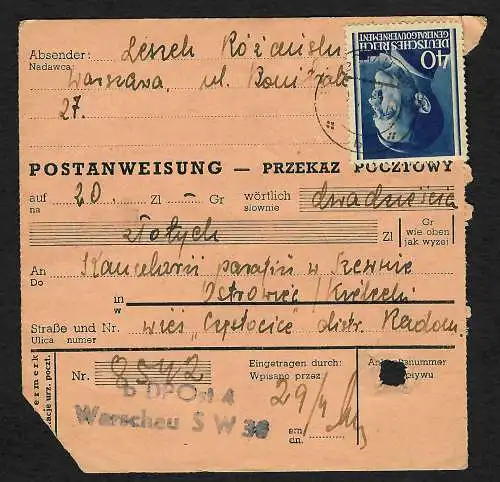 Absender: Leszek
Nadawca:
Warszawa, ul.
27.
40
DEUTSCHES REICH
GENERALGOUVERNEMENT
POSTANWEISUNG — PRZEKAZ POCZTOWY
auf 20 Zl — Gr wörtlich dwadzieścia
na słownie
złotych Zl Gr
wie oben
jak wyżej
An Kancelarii parafii w
Do
in Ostrowiec / Kielecki
w
Straße und Nr. wieś „Częstocice" distr. Radom.
Ulica numer
Nr. Eingetragen durch:
Wpisano przez
b DPOst 4
Warschau S W 38
29/4
am
dn.